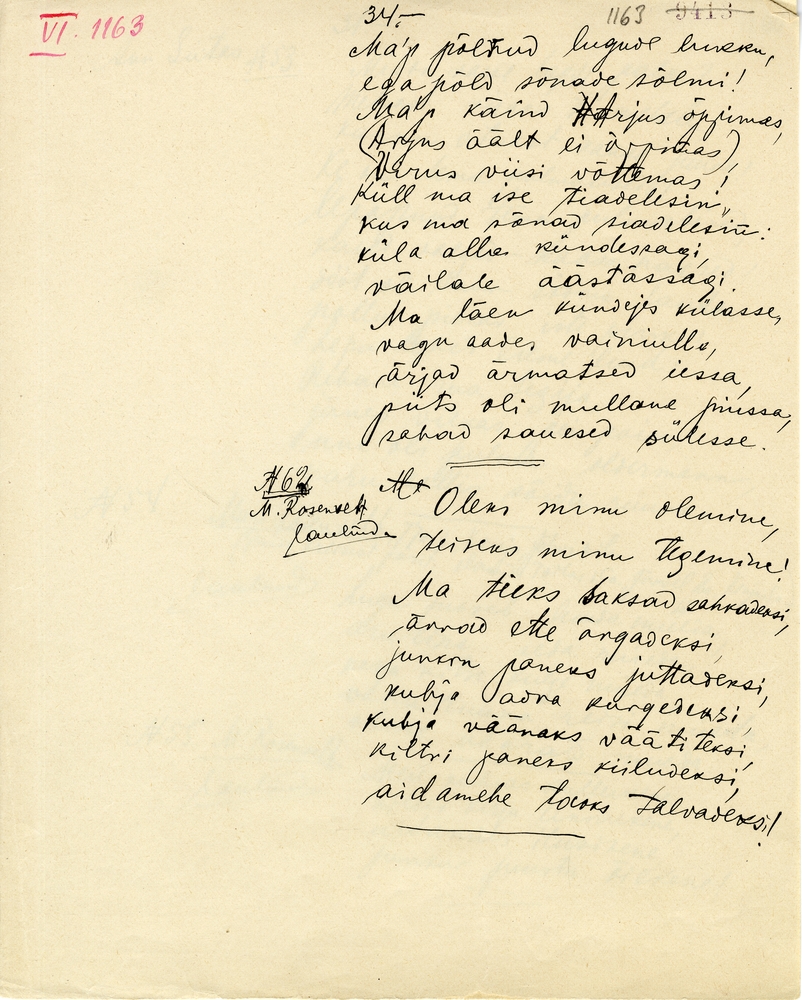 VI. 1163
34.-
1163 9413
Ma'p põltnud lugude lukku,
ega põld sõnade sõlmi!
Ma'p käind Harjus õppimas,
(Arjus äält ei õppimas)
Virus viisi võttemas!
Küll ma ise tiadelesin,
kus ma sõnad siadelesin:
küla alla kündessagi,
väilale äästässägi.
Ma läen kündejes külasse,
vagu aades vainiulle,
ärjad ärmatsed iessa,
piits oli mullane piussa,
sahad sauesed sülesse.
N 62
M. Rosenvelt
lauelnud
Oleks minu olemine,
teiseks minu tegemine!
Ma tieks saksad sahkadeksi,
ärrad ette õrgadeksi,
junkru paneks juttadeksi,
kubja adra kurgedeksi,
kubja väänaks väätiteksi,
kiltri paneks kiiludeksi,
aidamehe talvadeksi!